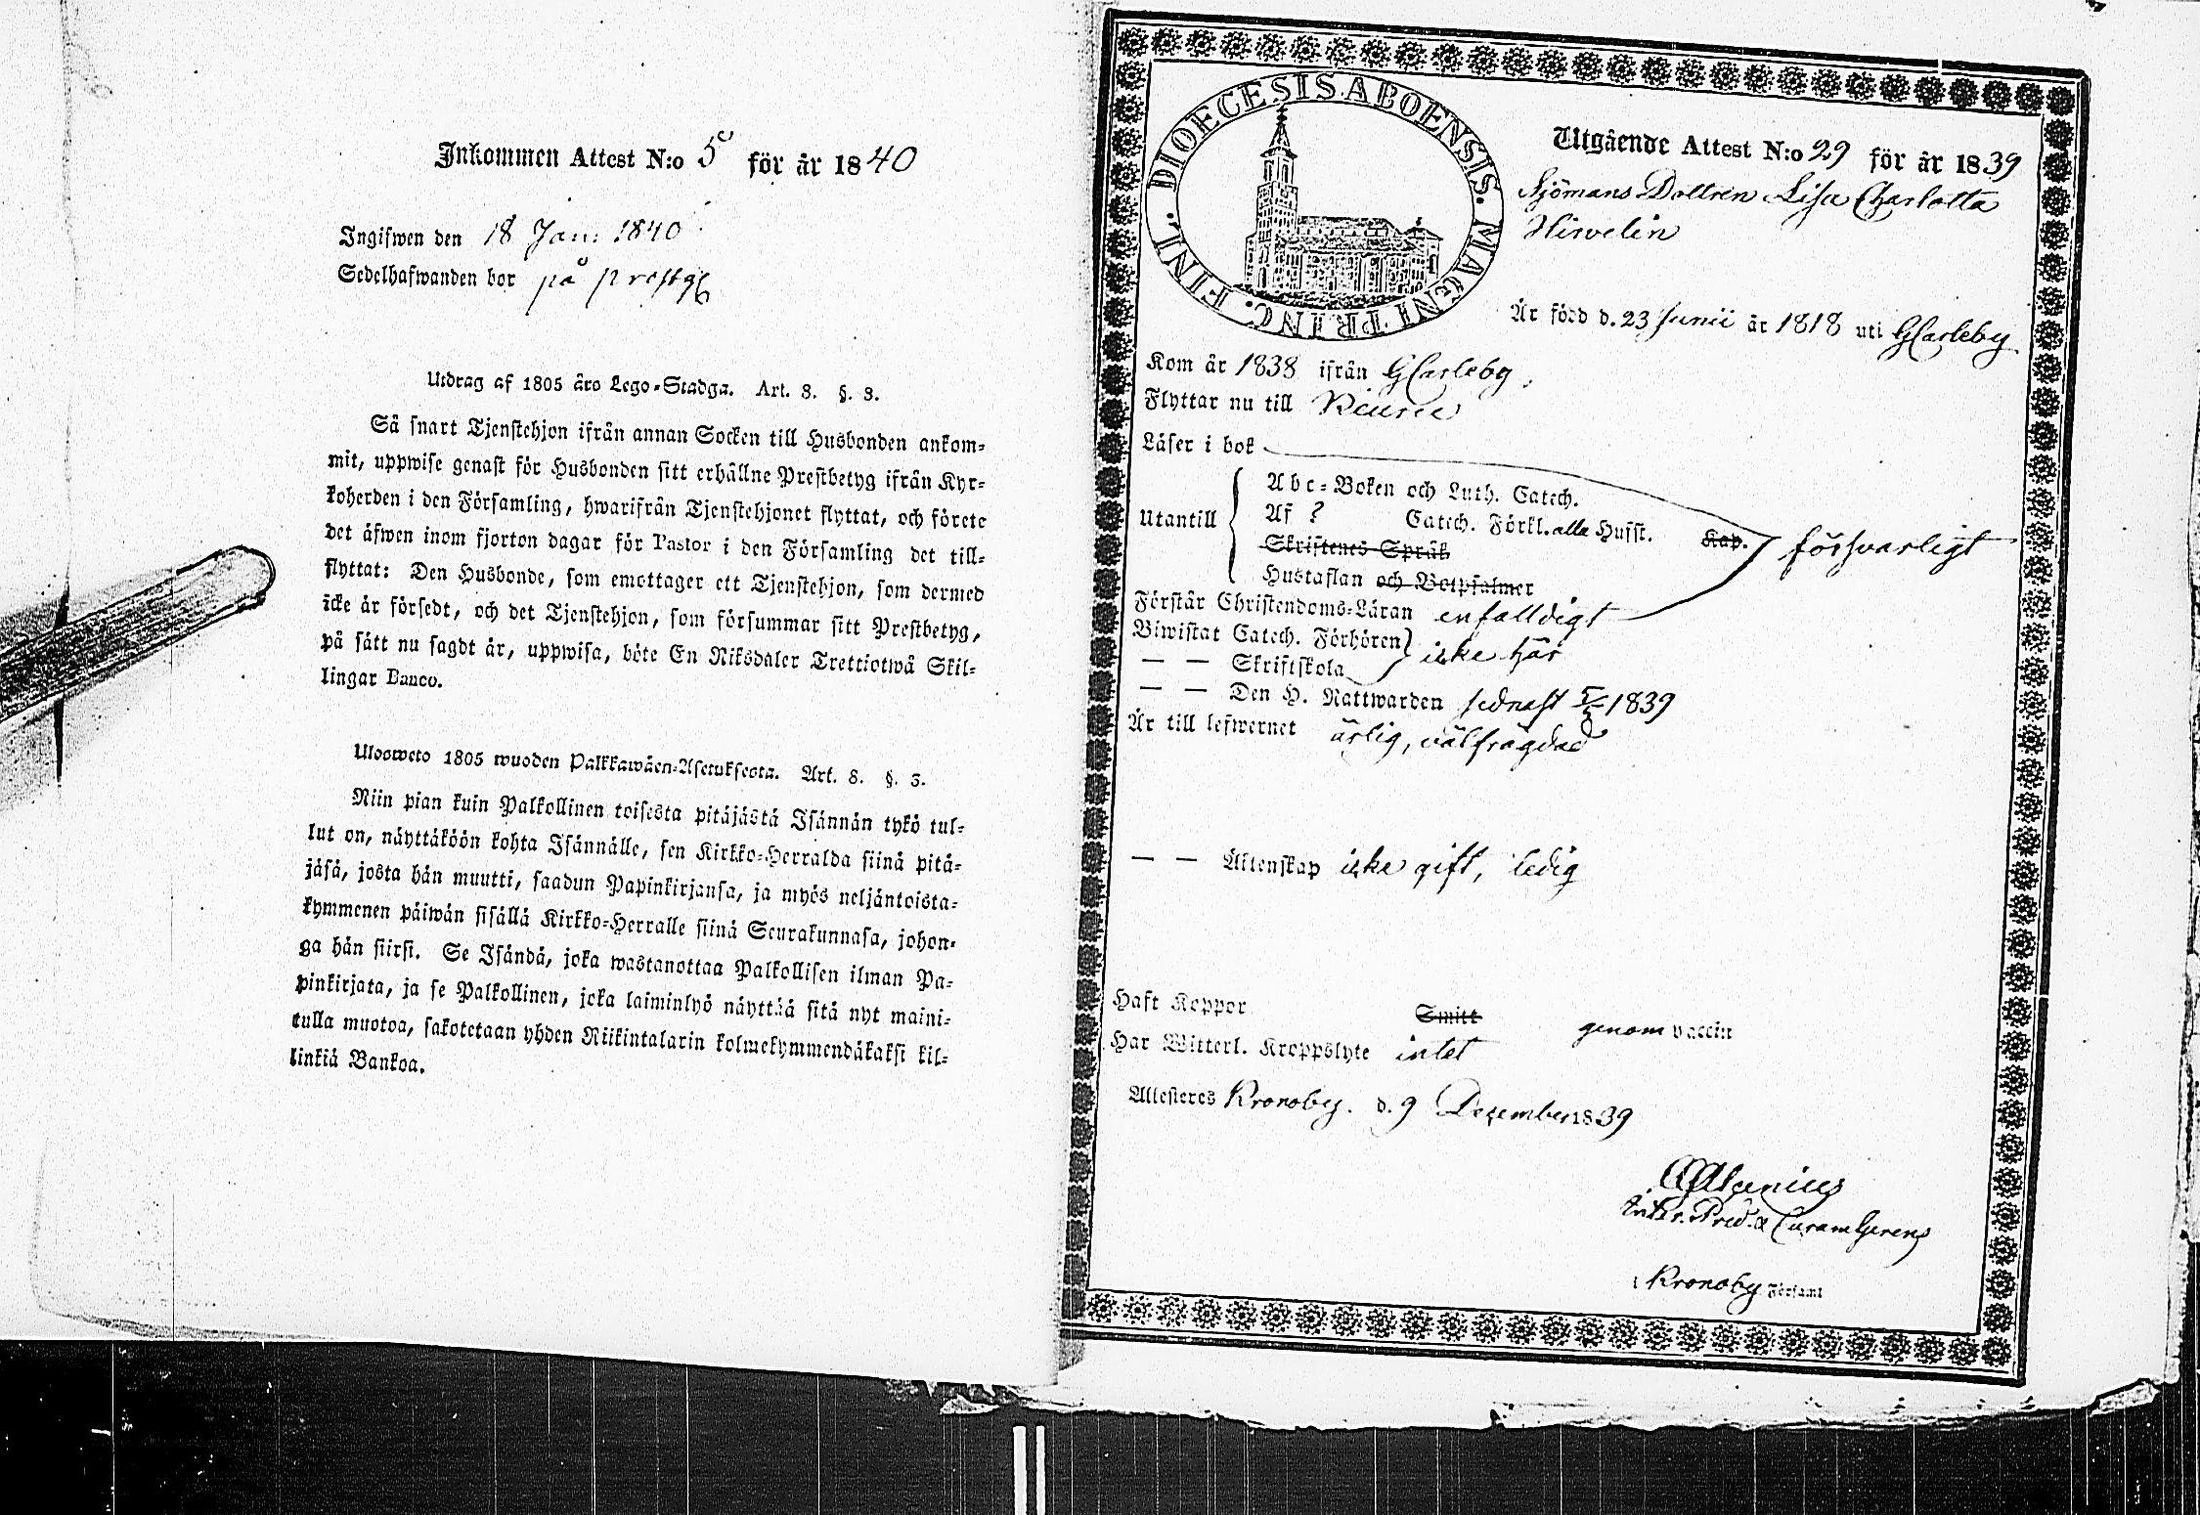 Inkommen Attest N:o 5 för år 1840
Ingifwen den 18 Jan: 1840
Sedelhafwanden bor på prestg
Utdrag af 1805 åro Lego-Stadga. Art. 8. §. 3.
Så snart Tjenstehjon ifrån annan Socken till Husbonden ankom-
mit, uppwise genast för Husbonden sitt erhållne Prestbetyg ifrån Kyr-
koherden i den Församling, hwarifrån Tjenstehjonet flyttat, och förete
det äfwen inom fjorton dagar för Pastor i den Församling det till-
flyttat: Den Husbonde, som emottager ett Tjenstehjon, som dermed
icke är försedt, och det Tjenstehjon, som försummar sitt Prestbetyg,
på sätt nu sagdt är, uppwisa, böte En Riksdaler Trettiotwå Skil-
lingar Banco.
Ulosweto 1805 wuoden Palkkawäen-Asetuksesta. Art. 8. §. 3.
Niin pian kuin Palkollinen toisesta pitäjästä Isännän tykö tul-
lut on, näyttäköön kohta Isännälle, sen Kirkko-Herralda siinä pitä-
jäsä, josta hän muutti, saadun Papinkirjansa, ja myös neljäntoista-
kymmenen päiwän sisällä Kirkko-Herralle siinä Seurakunnasa, johon-
ga hän siirsi. Se Isändä, joka wastanottaa Palkollisen ilman Pa-
pinkirjata, ja se Palkollinen, joka laiminlyö näyttää sitä nyt maini-
tulla muotoa, sakotetaan yhden Riikintalarin kolmekymmendäkaksi kil-
linkiä Bankoa.
DIOECESIS ABOENSIS. MAGNI PRINC. FINL.
Utgående Attest N:o 29 för år 1839
Sjömans Dottren Lisa Charlotta
Hirvelin
Är född d. 23 Junii år 1818 uti GCarleby
Kom år 1838 ifrån GCarleby
Flyttar nu till
Läser i bok
Utantill
Abc-Boken och Luth. Catech.
Af ? Catech. Förkl. alla Husst. Kap.
försvarligt
Skriftenes Språk
Hustaflan och Botpsalmer
Förstår Christendoms-Läran enfalldigt
Biwistat Catech. Förhören icke här
— — Skriftskola
— — Den H. Nattwarden sednast 5/5 1839
Är till lefwernet ärlig, välfrägdad
— — Äktenskap icke gift, ledig
Haft Koppor Smitt genom vaccin
Har Witterl. Kroppslyte intet
Attesteres Kronoby. d. 9 Dezember 1839
Curam Gerens
i Kronoby Församl